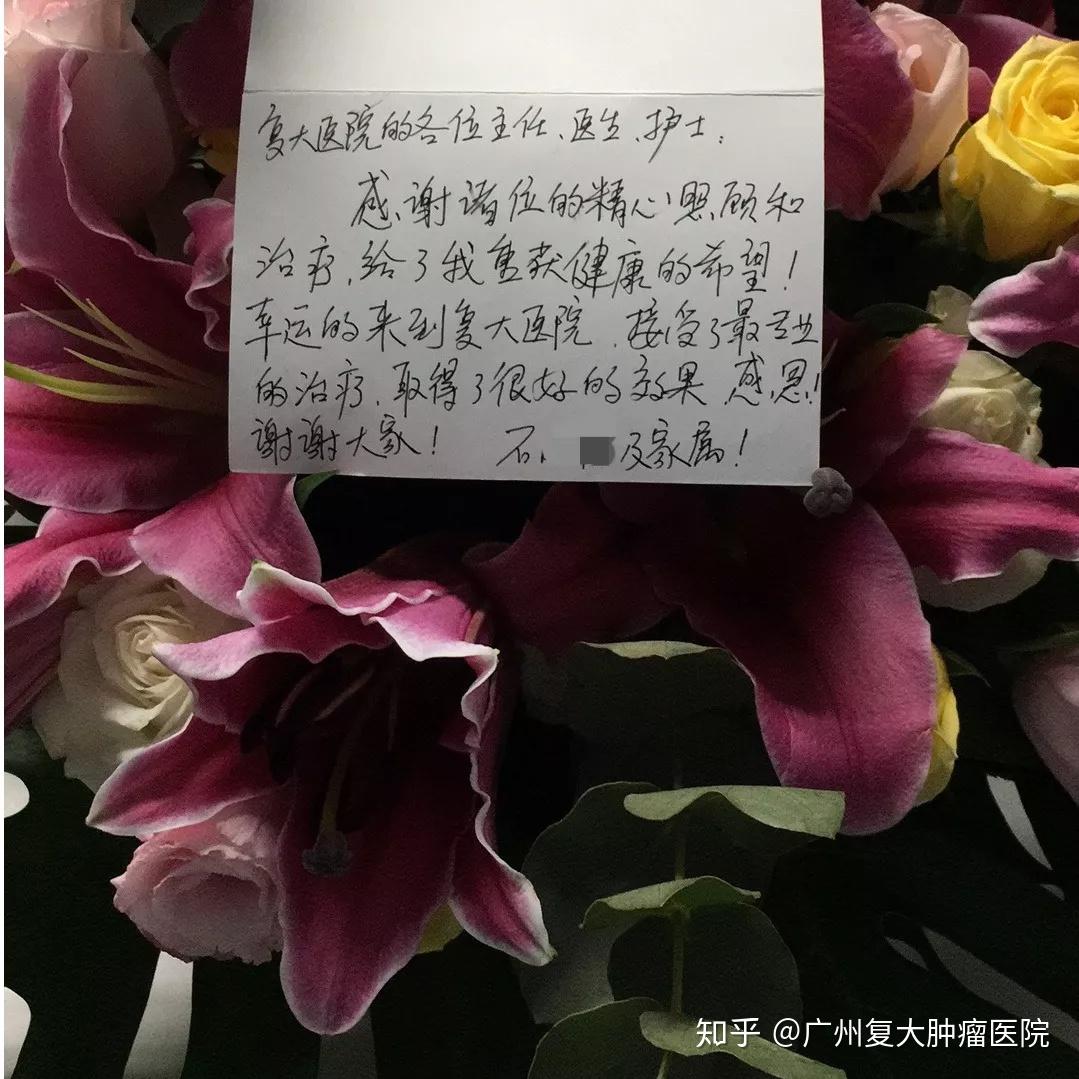 复大医院的各位主任、医生、护士：
感谢诸位的精心照顾和
治疗，给了我重获健康的希望！
幸运的来到复大医院，接受了最专业
的治疗，取得了很好的效果 感恩！
谢谢大家！ 石 及家属！
知乎 @广州复大肿瘤医院